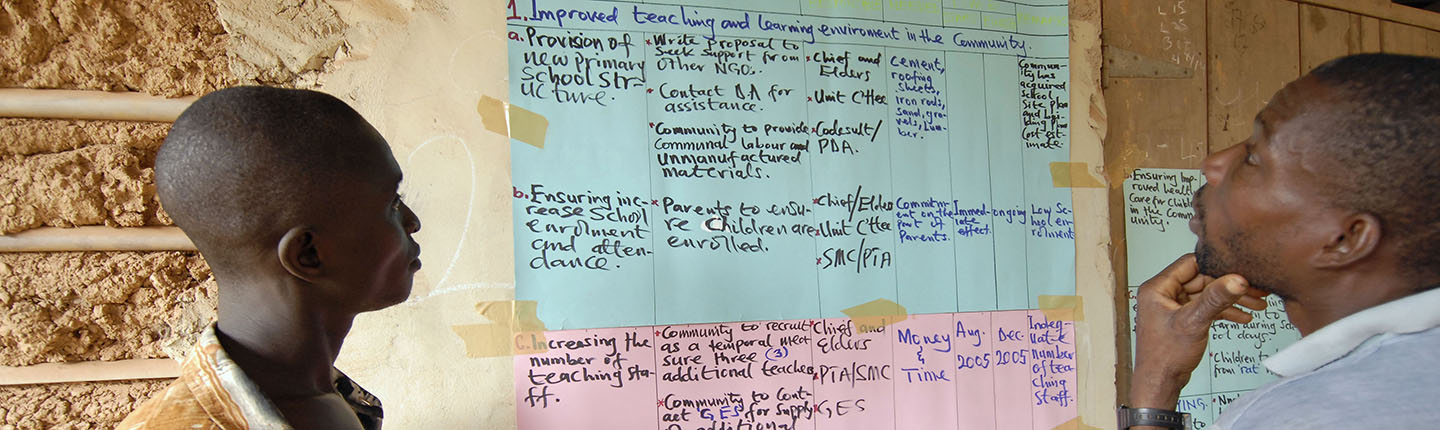 1. Improved teaching and learning enviroment in the Community.
a. Provision of
new primary
School str-
ucture.
* Write proposal to
seek support from
other NGO.
* Contact DA for
assistance.
* Community to provide
Communal labour and
unmanufactured
materials.
* Chief and
Elders
* Unit C'ttee
* Codesult/
PDA.
cement,
roofing
sheets,
Iron rods,
sand, gra-
vels, Lum-
ber.
Commun-
ity has
acquired
school
site plan
and
cost est-
imate.
b. Ensuring inc-
rease School
enrolment
and atten-
dance.
* Parents to ensu-
re Children are
enrolled.
* Chief/Elders
* Unit C'ttee
* SMC/PTA
Commitm-
ent on the
part of
Parents.
Immed-
iate
effect.
ongoing
Low Sc-
hool en-
rolment
C. Increasing the
number of
teaching sta-
ff.
* Community to recruit
as a temporal mea
sure three (3)
additional teachers
* Community to Cont-
act GES for supply
additional
* Chief and
Elders
* PTA/SMC
* GES
Money
&
Time
Aug.
2005
Dec.
2005
Indeq-
uate
number
of tea-
ching
Staff.
b. Ensuring Imp-
roved health
Care for Childr
in the Comm-
unity.
farm during Sch
ool days.
* Children to
from 'rat'